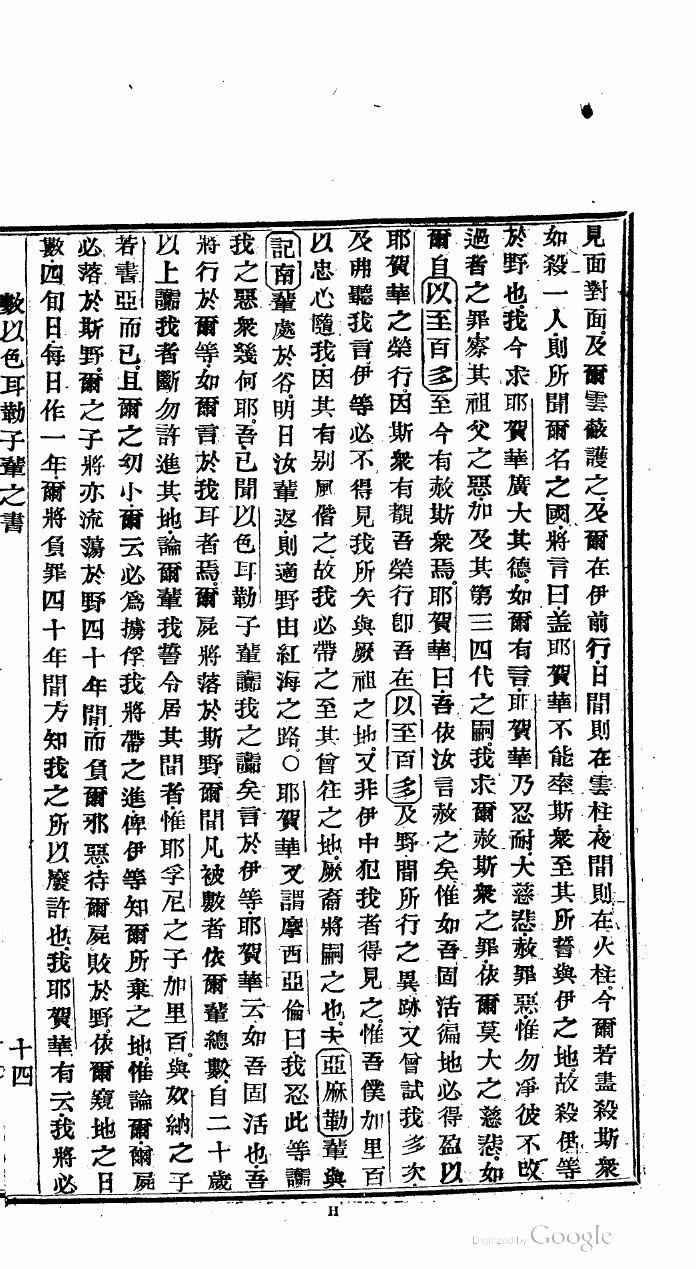 見面對面。及爾雲蔽護之。及爾在伊前行。日間則在雲柱。夜間則在火柱。今爾若盡殺斯衆
如殺一人。則所聞爾名之國。將言曰。盖耶賀華不能率斯衆至其所誓與伊之地。故殺伊等
於野也。我今求耶賀華廣大其德。如爾有言。耶賀華乃忍耐大慈悲。赦罪惡。惟勿凈彼不改
過者之罪。察其祖父之惡。加及其第三四代之嗣。我求爾赦斯衆之罪。依爾莫大之慈悲。如
爾自以至百多至今有赦斯衆焉。耶賀華曰。吾依汝言赦之矣。惟如吾固活。徧地必得盈以
耶賀華之榮行。因斯衆有觀吾榮行。卽吾在以至百多及野間所行之異跡。又曾試我多次。
及弗聽我言。伊等必不得見我所矢與厥祖之地。又非伊中犯我者得見之。惟吾僕加里百
以忠心隨我。因其有别風偕之。故我必帶之至其曾往之地。厥裔將嗣之也。夫亞麻勒輩與
記南輩處於谷。明日汝輩返。則適野由紅海之路。○耶賀華又謂摩西亞倫曰。我忍此等讟
我之惡衆幾何耶。吾已聞以色耳勒子輩讟我之讟矣。言於伊等。耶賀華云。如吾固活也。吾
將行於爾等。如爾言於我耳者焉。爾屍將落於斯野。爾間凡被數者。依爾輩總數。自二十歲
以上讟我者。斷勿許進其地。論爾輩我誓令居其間者。惟耶孚尼之子加里百。與奴納之子
若書亞而已。且爾之幼小。爾云必爲擄俘。我將帶之進。俾伊等知爾所棄之地。惟論爾。爾屍
必落於斯野。爾之子將亦流蕩於野四十年間。而負爾邪惡。待爾屍敗於野。依爾窺地之日
數。四旬日。每日作一年。爾將負罪四十年間。方知我之所以廢許也。我耶賀華有云。我將必
數以色耳勒子輩之書
十四
H
Digitized by Google